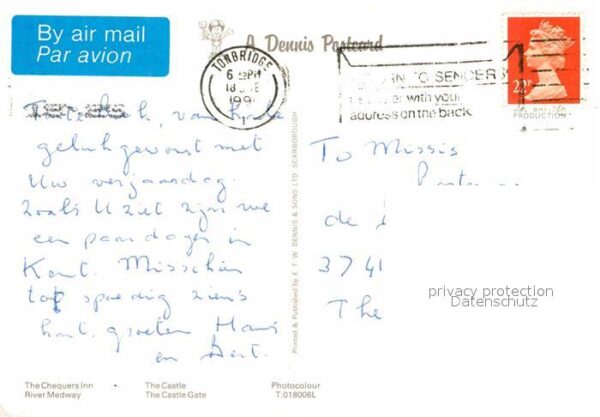 By air mail
Par avion
A Dennis Postcard
TONBRIDGE
6 PM
199
TO SENDER
with your
address on the back
22P
PRODUCTION
van harte
gelukgewenst met
Uw verjaardag.
Zoals U ziet zijn we
een paar dagen in
Kent. Misschien
tot spoedig ziens
hart. groeten Hans
en Bert.
Printed & Published by E. T. W. DENNIS & SONS LTD. SCARBOROUGH
To Missis
de
374
The
privacy protection
Datenschutz
The Chequers Inn
River Medway
The Castle
The Castle Gate
Photocolour
T.018006L